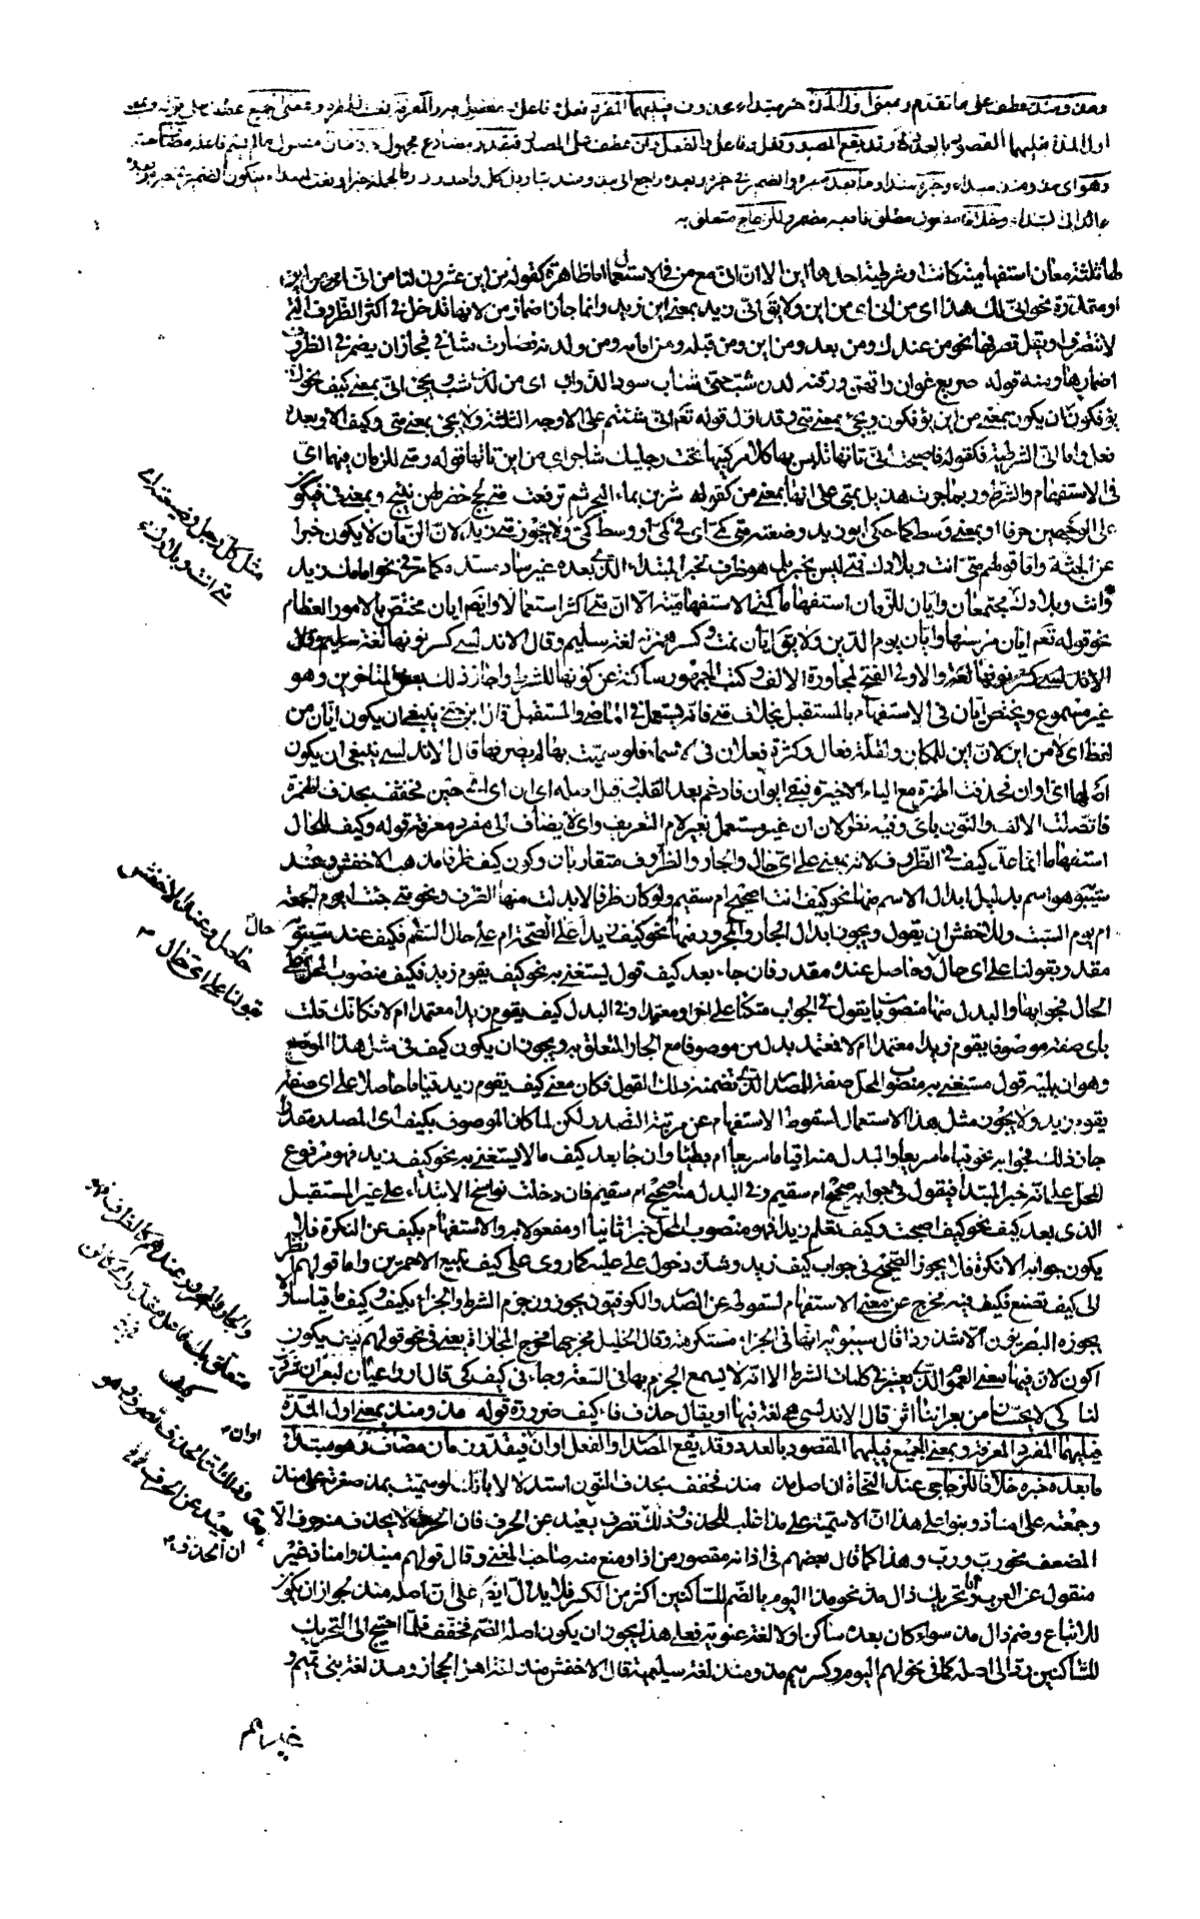 ومذ ومنذ عطف على ما تقدم وبمعنى اول المدة خبر مبتداء محذوف فيليهما المفرد فعل وفاعل
اول المدة فيليهما المقصود بالعدد وقد يقع المصدر فعل وفاعل والفعل وان عطف على المصدر فيقدر مضارع مجهول زمان مضاف
وهو اى مذ ومنذ مبتداء وخبره مبتدا وما بعده خبره والضمير فى خبره وبعده راجع الى مذ ومنذ بتاويل كل واحد
عائد الى المبتداء وخلافا مفعول مطلق ناصبه مضمر وللزجاج متعلق به
لها ثلثة معان استفهامية كانت او شرطية احدها اين الا ان انى مع من فى الاستعمال اما ظاهرة كقوله من اين عشرون لنا من انى اى من اين
او مقدرة نحو انى لك هذا اى من انى اى من اين ولا يق انى زيد بمعنى اين زيد وانما جاز اضمار من لانها تدخل فى اكثر الظروف التى
لا تتصرف او يقل تصرفها نحو من عندك ومن بعد ومن اين ومن قبله ومن امامه ومن لدنه فصارت مثل فى فجاز ان يضمر فى الظروف
اضمارها ومنه قوله صريع غوان راقهن ورقنه لدن شب حتى شاب سود الذوائب اى من لدن شب ويجئ انى بمعنى كيف نحو انى
يؤفكون ان يكون بمعنى من اين يؤفكون ويجئ بمعنى متى وقد اول قوله تعم انى شئتم على الاوجه الثلثة ولا يجئ بمعنى متى وكيف الا وبعده
فعل واما انى الشرطية فكقوله فاصبحت انى تاتها تلتبس بها كلا مركبيها تحت رجليك شاجر اى من اين تاتها قوله ومتى للزمان فيهما اى
فى الاستفهام والشرط وربما جرت هذيل بمتى على انها بمعنى من كقوله شربن بماء البحر ثم ترفعت متى لجج خضر لهن نئيج وبمعنى فى فيكون
على الوجهين حرفا او بمعنى وسط كما حكى ابو زيد وضعته متى كمى اى فى كمى او وسط كمى ولا يجوز متى زيد لان الزمان لا يكون خبرا
عن الجثة واما قولهم متى انت وبلادك فمتى ليس بخبر بل هو ظرف لخبر المبتداء الذى بعده غير ساد مسده كما مر فى نحو امامك زيد
وانت وبلادك مجتمعان وايان للزمان استفهاما كمتى الاستفهامية الا ان متى اكثر استعمالا وايضم ايان مختص بالامور العظام
نحو قوله تعم ايان مرسيها وايان يوم الدين ولا يق ايان نمت وكسر همزته لغة سليم وقال الاندلسى كسر نونها لغة سليم وقال
الاندلسى كسر نونها لغة والاولى الفتح لمجاورة الالف وكتب الجمهور ساكتة عن كونها للشرط واجاز ذلك بعض المتاخرين وهو
غير مسموع ويختص ايان فى الاستفهام بالمستقبل بخلاف متى فانه يستعمل فى الماضى والمستقبل قال ابن جنى ينبغى ان يكون ايان من
لفظ اى لا من اين لان اين للمكان ولقلة فعال وكثرة فعلان فى الاسماء فلو سميت بها لم يصرفها قال الاندلسى ينبغى ان يكون
اصلها اى اوان فحذفت الهمزة مع الياء الاخيرة فبقى ايوان فادغم بعد القلب وقيل اصله اى ان اى اى حين فخفف بحذف الهمزة
فاتصلت الالف والنون باى وفيه نظر لان ان غير مستعمل بغير لام التعريف واى لا يضاف الى مفرد معرفة قوله وكيف للحال
استفهاما انما عد كيف فى الظروف لانه بمعنى على اى حال والجار والظرف متقاربان وكون كيف ظرفا مذهب الاخفش وعند
سيبويه هو اسم بدليل ابدال الاسم منها نحو كيف انت اصحيح ام سقيم ولو كان ظرفا لابدلت منها الظرف نحو متى جئت ايوم الجمعة
ام يوم السبت وللاخفش ان يقول ويجوز ابدال الجار والمجرور منها نحو كيف زيد اعلى الصحة ام على حال السقم فكيف عند سيبويه
مقدر بقولنا على اى حال وحاصل عنده مقدر فان جاء بعد كيف قول يستغنى به نحو كيف يقوم زيد فكيف منصوب المحل على
الحال فجوابها والبدل منها منصوبان يقول فى الجواب متكئا على اخر او معتمدا وفى البدل كيف يقوم زيد امعتمدا ام لا فكانك قلت
باى صفة موصوفا يقوم زيد امعتمدا ام لا فمعتمد بدل من موصوفا مع الجار المتعلق به ويجوز ان يكون كيف فى مثل هذا الموضع
وهو ان يليه قول مستغنى به منصوب المحل صفة للمصدر الذى تضمنه ذلك القول فكان معنى كيف يقوم زيد قياما حاصلا على اى صفة
يقوم زيد ولا يجوز مثل هذا الاستعمال لسقوط الاستفهام عن مرتبة التصدر لكن لما كان الموصوف بكيف اى المصدر مقدرا
جاز ذلك فجوابه نحو قياما سريعا والبدل منه اقياما سريعا ام بطيئا وان جا بعد كيف ما لا يستغنى به نحو كيف زيد فهو مرفوع
المحل على انه خبر المبتدا فيقول فى جوابه صحيح ام سقيم وفى البدل منه اصحيح ام سقيم فان دخلت نواسخ الابتداء على غير المستقبل
الذى بعد كيف نحو كيف اصبحت وكيف تعلم زيدا فهو منصوب المحل خبرا ثانيا او مفعولا به والاستفهام بكيف عن النكرة فلا
يكون جوابه الا نكرة فلا يجوز الصحيح فى جواب كيف زيد وشذ دخول على عليه كما روى على كيف تبيع الاحمرين واما قولهم انظر
الى كيف تصنع فكيف فيه مخرج عن معنى الاستفهام لسقوطه عن الصدر والكوفيون يجوزون جزم الشرط والجزاء بكيف وكيفما قياسا ولا
يجوزه البصريون الا شذوذا قال سيبويه انها فى الجزاء مستكرهة وقال الخليل مخرجها مخرج المجازاة يعنى فى نحو قولهم كيف يكون
اكون لان فيها معنى العموم الذى يعتبر فى كلمات الشرط الا انه لا يسمع الجزم بها فى السعة وجاء فى كيف كى قال او راعيان لبعران شردن
لنا كى لا يحسان من بعراننا اثرا قال الاندلسى هى لغة فيها او يقال حذف فاء كيف ضرورة قوله مذ ومنذ بمعنى اول المدة
فيليهما المفرد المعرفة وبمعنى الجميع فيليهما المقصود بالعدد وقد يقع المصدر او الفعل او ان فيقدر زمان مضاف وهو مبتدا
ما بعده خبره خلافا للزجاج عند النحاة ان اصل مذ منذ فخفف بحذف النون استدلالا بانك لو سميت بمذ صغرته على منيذ
وجمعته على امناذ وبنوا على هذا ان الاسمية على مذ اغلب للحذف وذلك تصرف بعيد عن الحرف فان الحرف لا يحذف منه حرف الا
المضعف نحو رب ورب وهذا كما قال بعضهم فى اذ انه مقصور من اذا ومنع منه صاحب المغنى وقال قولهم منيذ وامناذ غير
منقول عن العرب واما تحريك ذال مذ نحو مذ اليوم بالضم للساكنين اكثر من الكسر فلا يدل ايضم على ان اصله منذ لجواز ان يكون
للاتباع وضم ذال مذ سواء كان بعده ساكن او لا لغة غنوية فعلى هذا يجوز ان يكون اصله الضم فخفف فلما احتيج الى التحريك
للساكنين رد الى اصله كما فى نحو لهم اليوم وكسر ميم مذ ومنذ لغة سليمية قال الاخفش منذ لغة اهل الحجاز ومذ لغة بنى تميم و
غيرهم
مثل كل رجل وضيعته اى
متى انت وبلادك
حال
حاصل وعند الاخفش
بقولنا على اى حال
والجار والمجرور عندهم كالظرف فهو
متعلق باسم فاعل مقدر اى كائن
كيف
اوان
وفى ذلك ان الحذف تصرف وهو
بعيد عن الحرف